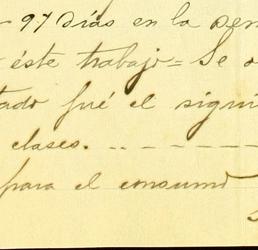 97 días en la
éste trabajo = Se
tado fué el signi
clases. . . - - - - - -
para el consumo